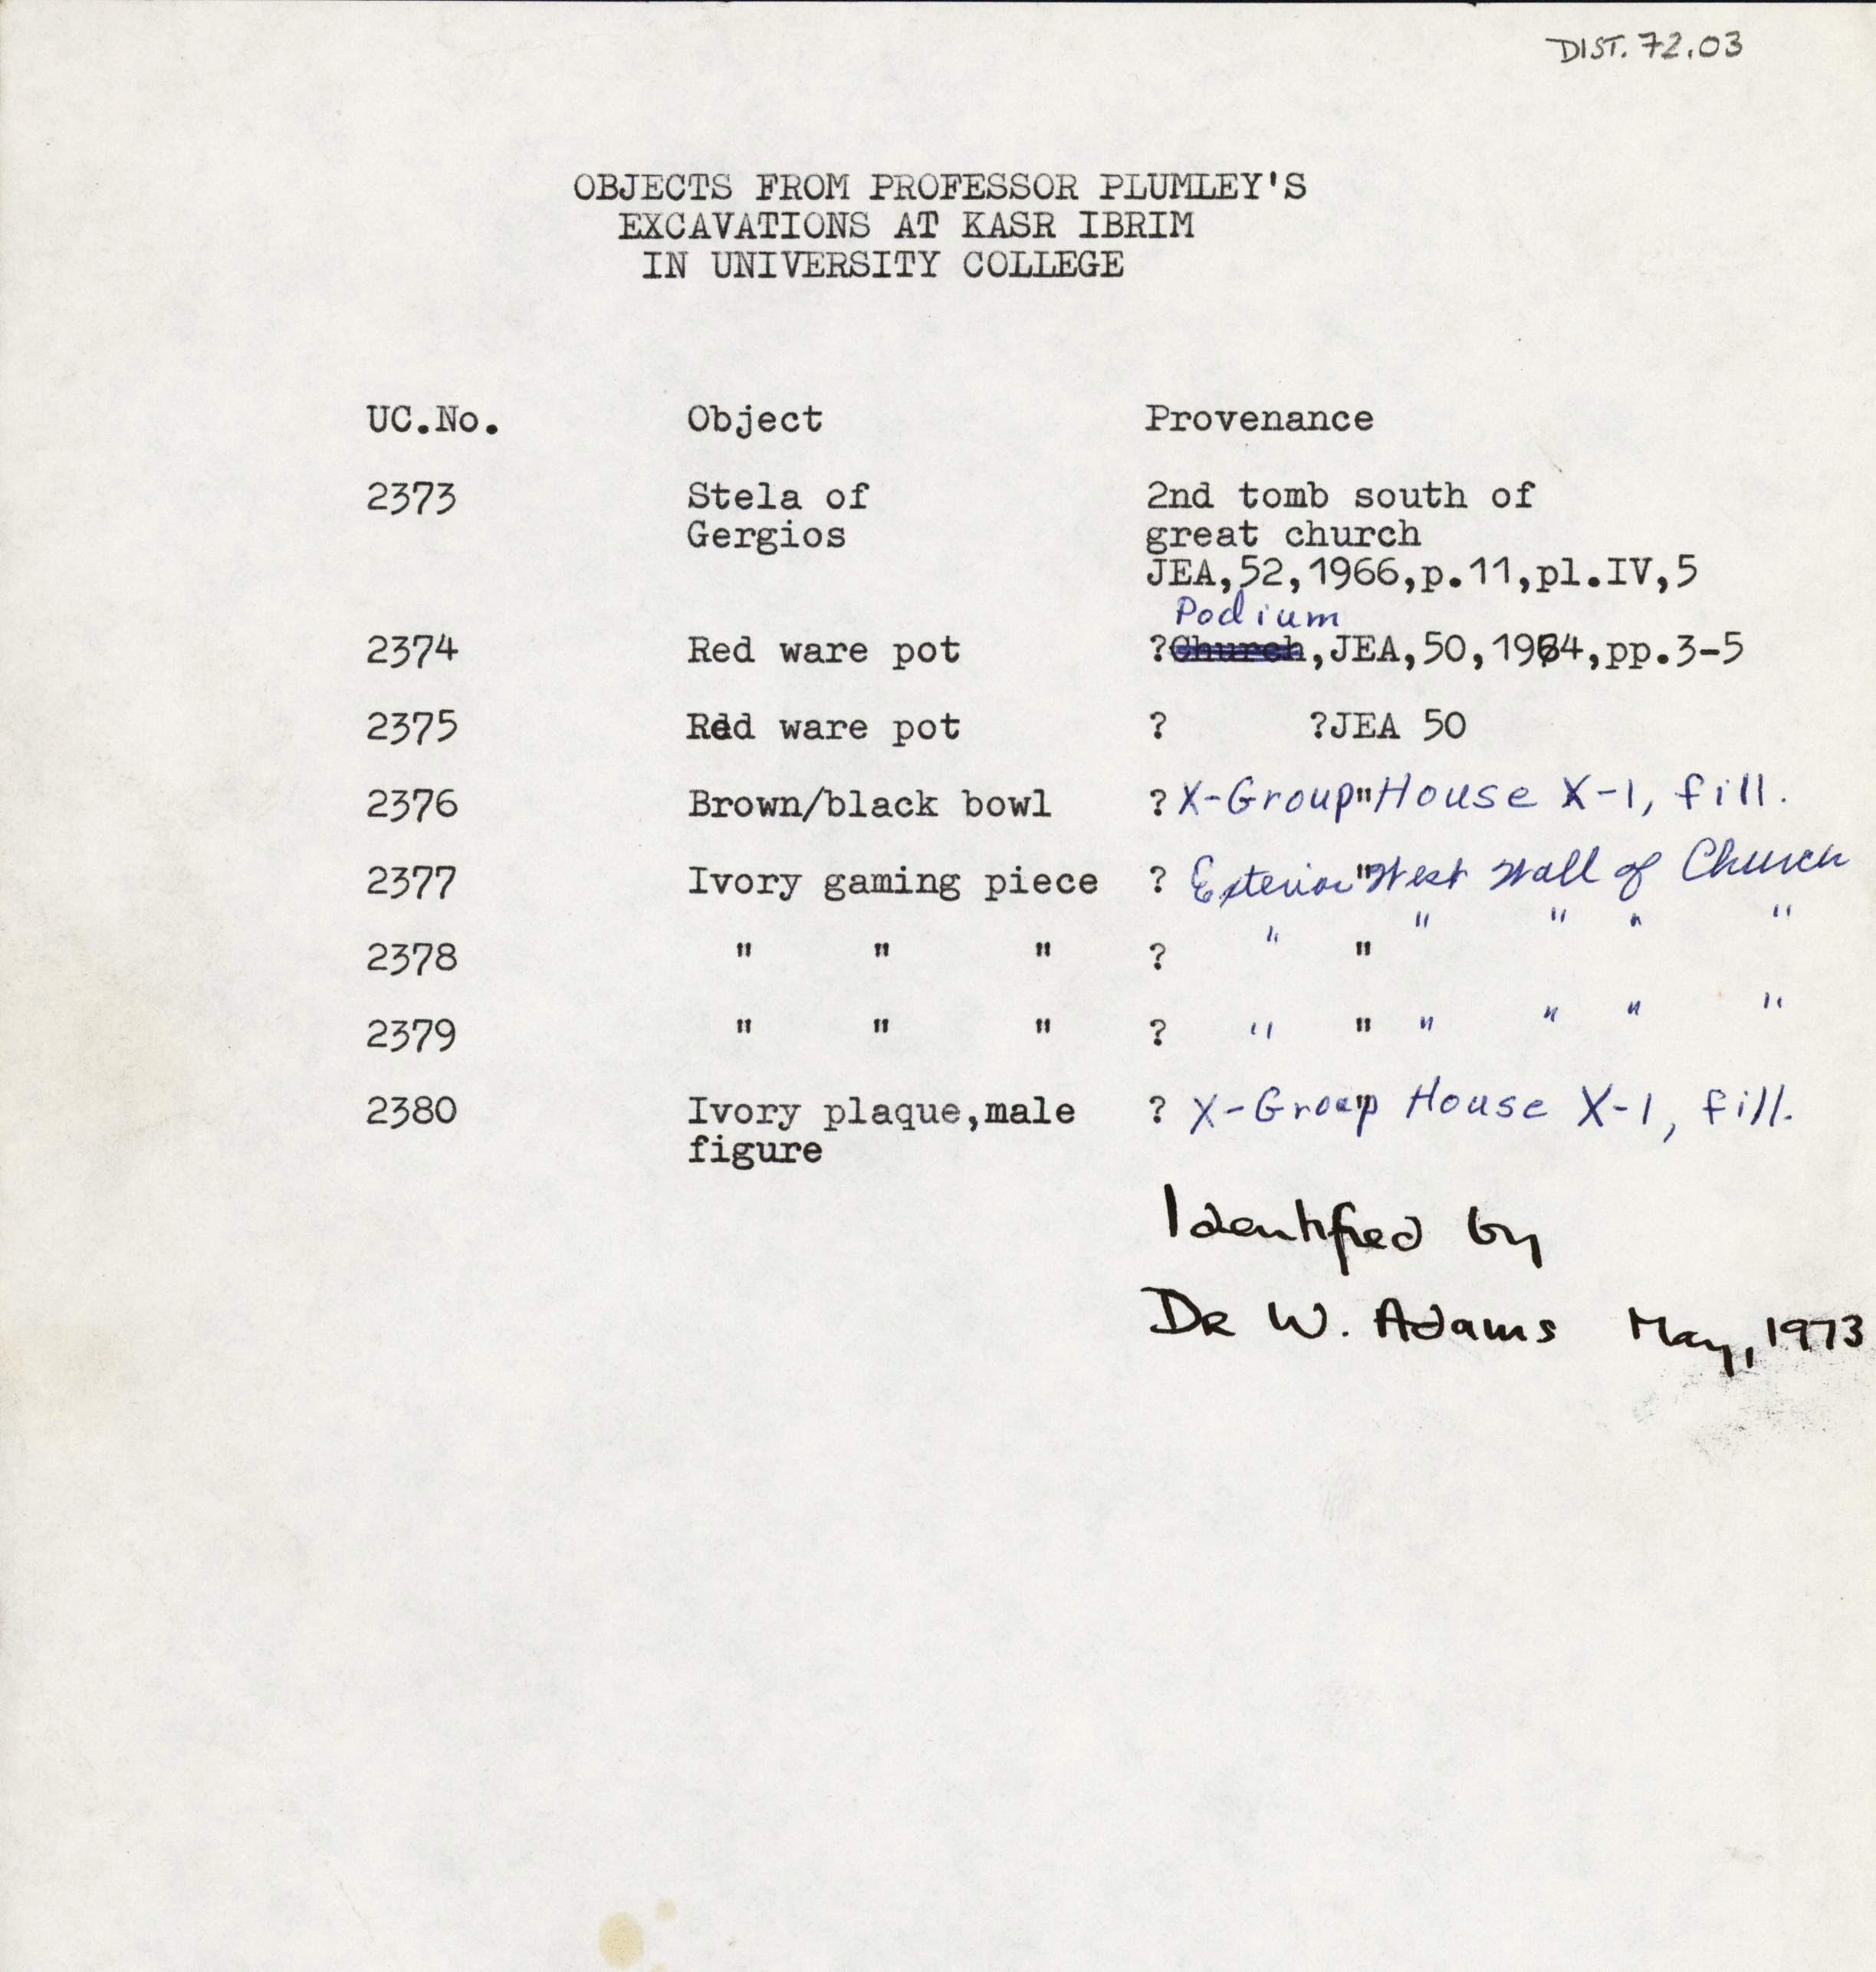 DIST. 72.03
OBJECTS FROM PROFESSOR PLUMLEY'S
EXCAVATIONS AT KASR IBRIM
IN UNIVERSITY COLLEGE
UC.No. Object Provenance
2373 Stela of 2nd tomb south of
Gergios great church
JEA,52,1966,p.11,pl.IV,5
Podium
2374 Red ware pot ?Church,JEA,50,1964,pp.3-5
2375 Red ware pot ? ?JEA 50
2376 Brown/black bowl ? X-Group " House X-1, fill.
2377 Ivory gaming piece ? Exterior " West Wall of Church
2378 " " " ? " " " " " "
2379 " " " ? " " " " " "
2380 Ivory plaque,male ? X-Group " House X-1, fill.
figure
Identified by
DR W. Adams May, 1973